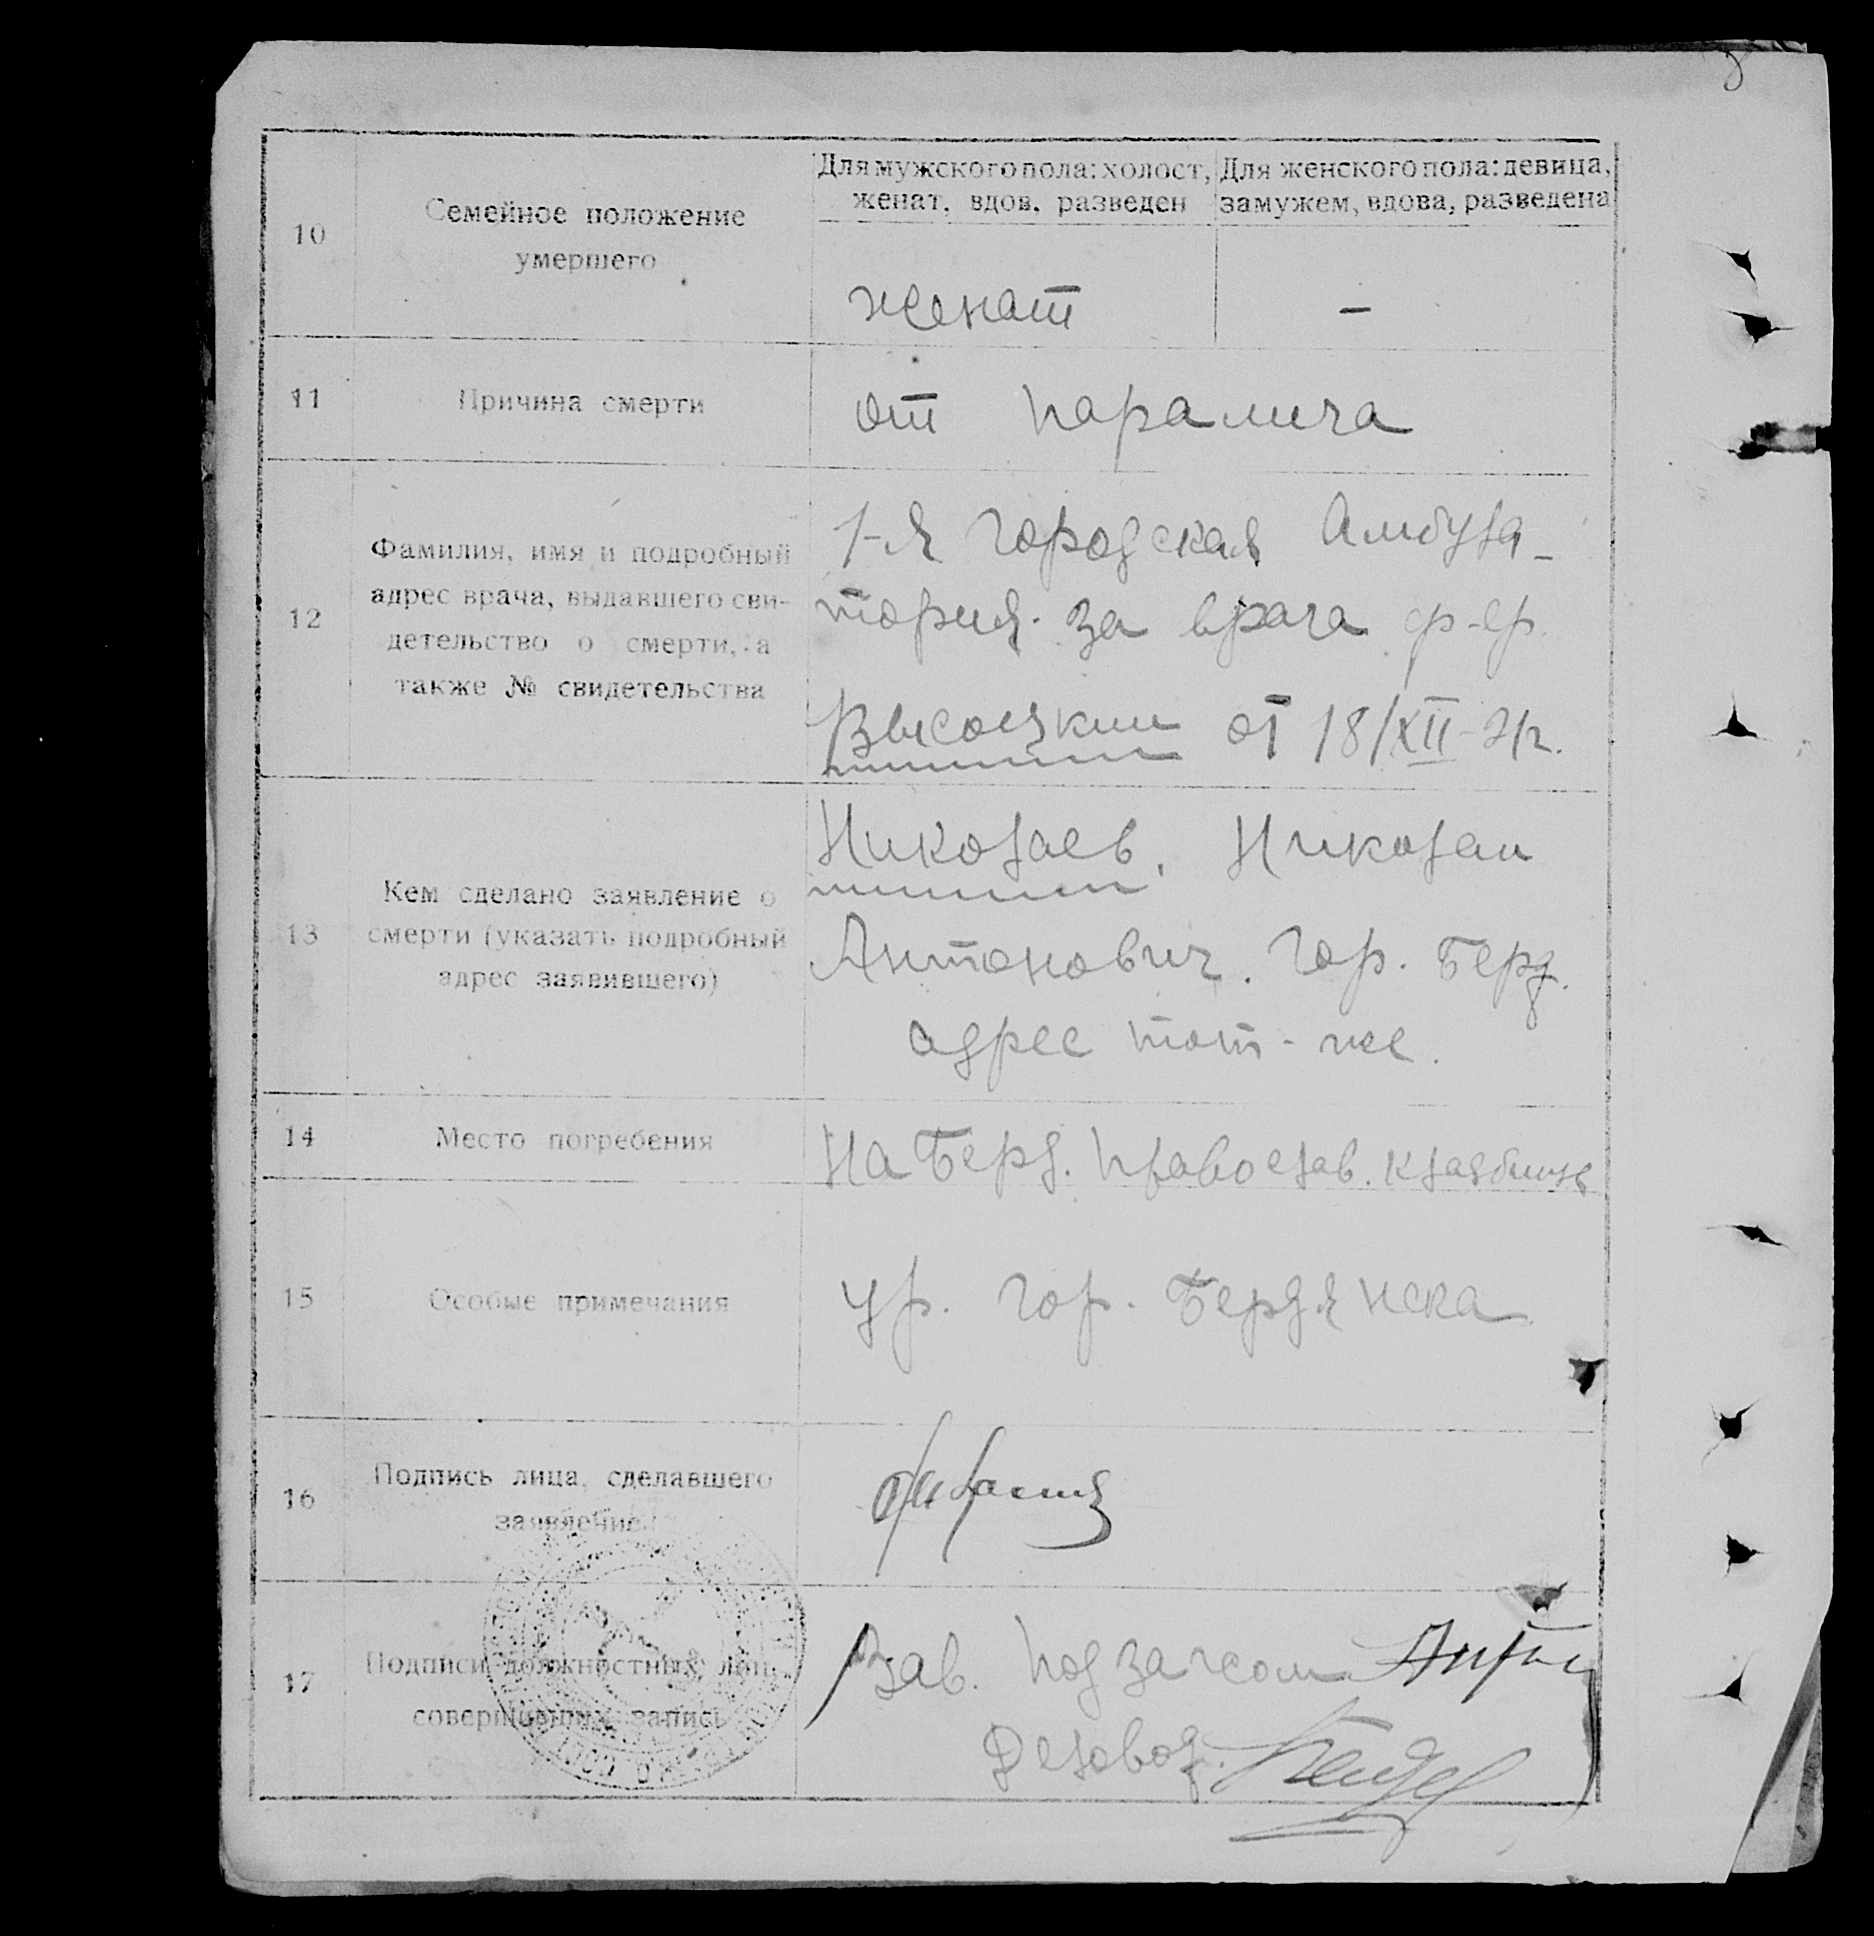 Для мужского пола: холост, Для женского пола: девица,
женат, вдов, разведен замужем, вдова, разведена
10 Семейное положение
умершего
женат -
11 Причина смерти от паралича
12 Фамилия, имя и подробный
адрес врача, выдавшего сви-
детельство о смерти, а
также № свидетельства
1-я городская Амбула-
тория. за врача ф-ер.
Высоцкий от 18/XII-
13 Кем сделано заявление о
смерти (указать подробный
адрес заявившего)
Николаев, Николай
Антонович. гор. Берд.
адрес тот-же.
14 Место погребения На Берд. Православ. кладбище
15 Особые примечания ур. гор. Бердянска
16 Подпись лица, сделавшего
заявление
17 Подписи должностных лиц,
совершивших запись
Зав. подзагсом
Деловод.